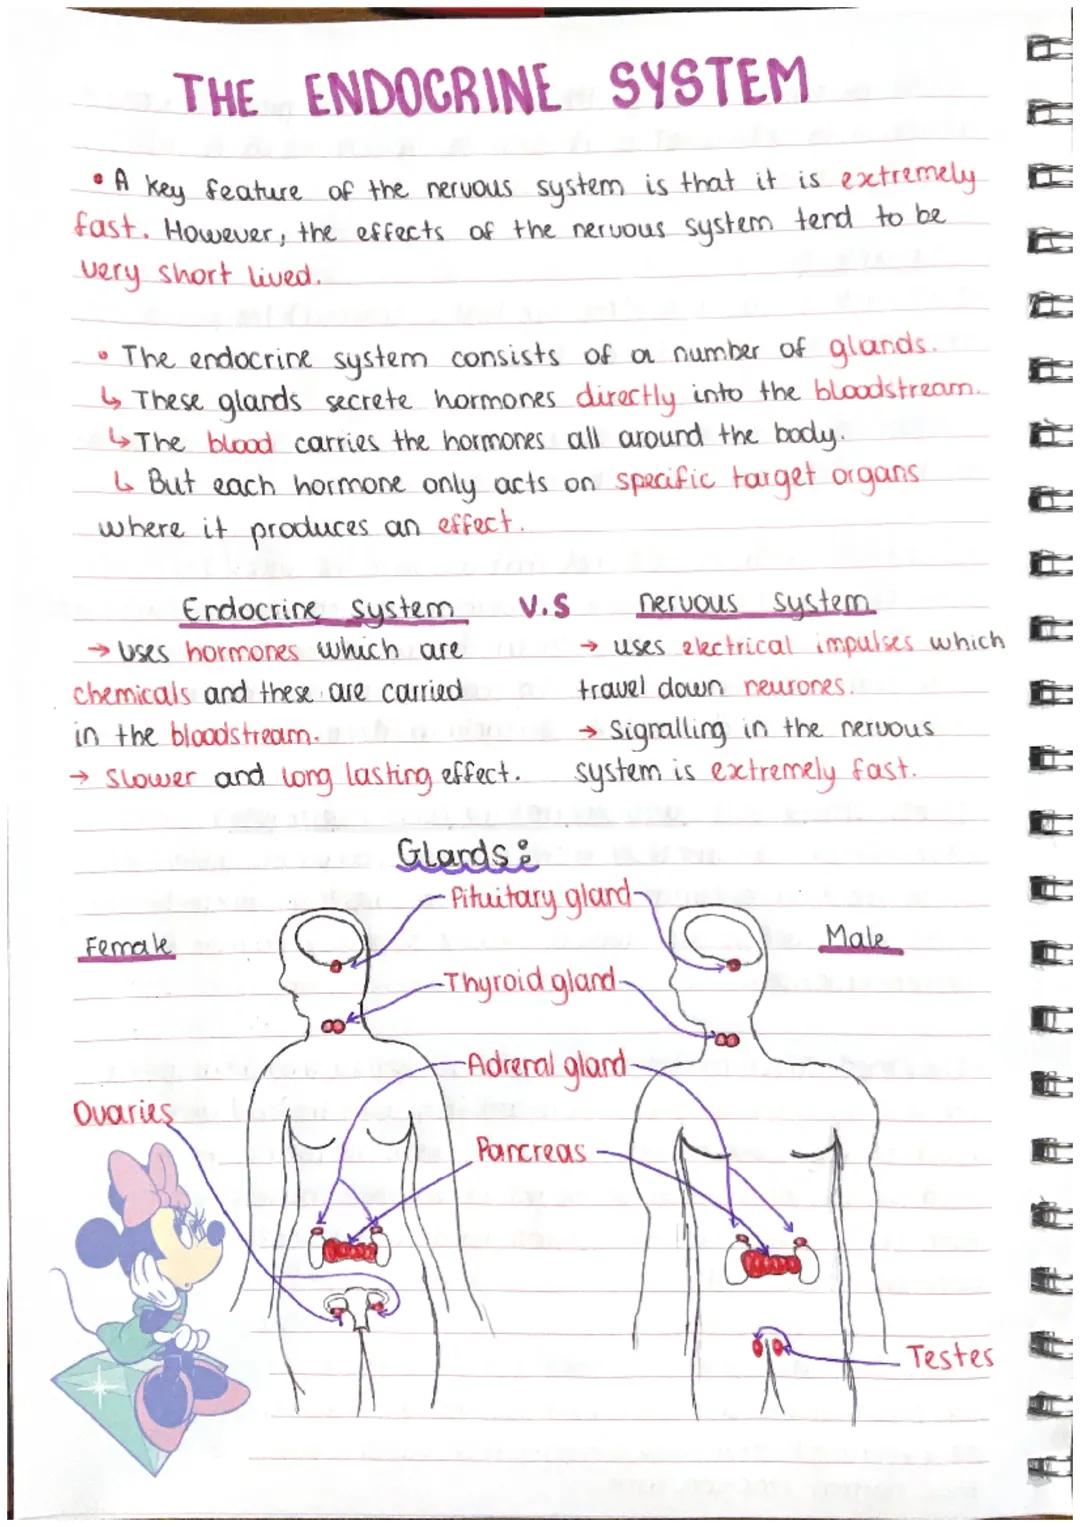 THE ENDOCRINE SYSTEM
• A key feature of the nervous system is that it is extremely
fast. However, the effects of the nervous system tend to be
very short lived.
• The endocrine system consists of a number of glands.
↳ These glands secrete hormones directly into the bloodstream.
↳ The blood carries the hormones all around the body.
↳ But each hormone only acts on specific target organs
where it produces an effect.
Endocrine system V.S nervous system
→ Uses hormones which are
chemicals and these are carried
in the bloodstream.
→ Slower and long lasting effect.
→ uses electrical impulses which
travel down neurones.
→ Signalling in the nervous
system is extremely fast.
Glands:
Pituitary gland
Female
Male
Thyroid gland
Adrenal gland
Ovaries
Pancreas
Testes